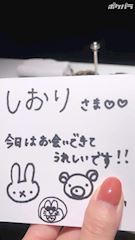 ポケパラ
しおりさま♡♡
今日はお会いできて
うれしいです!!